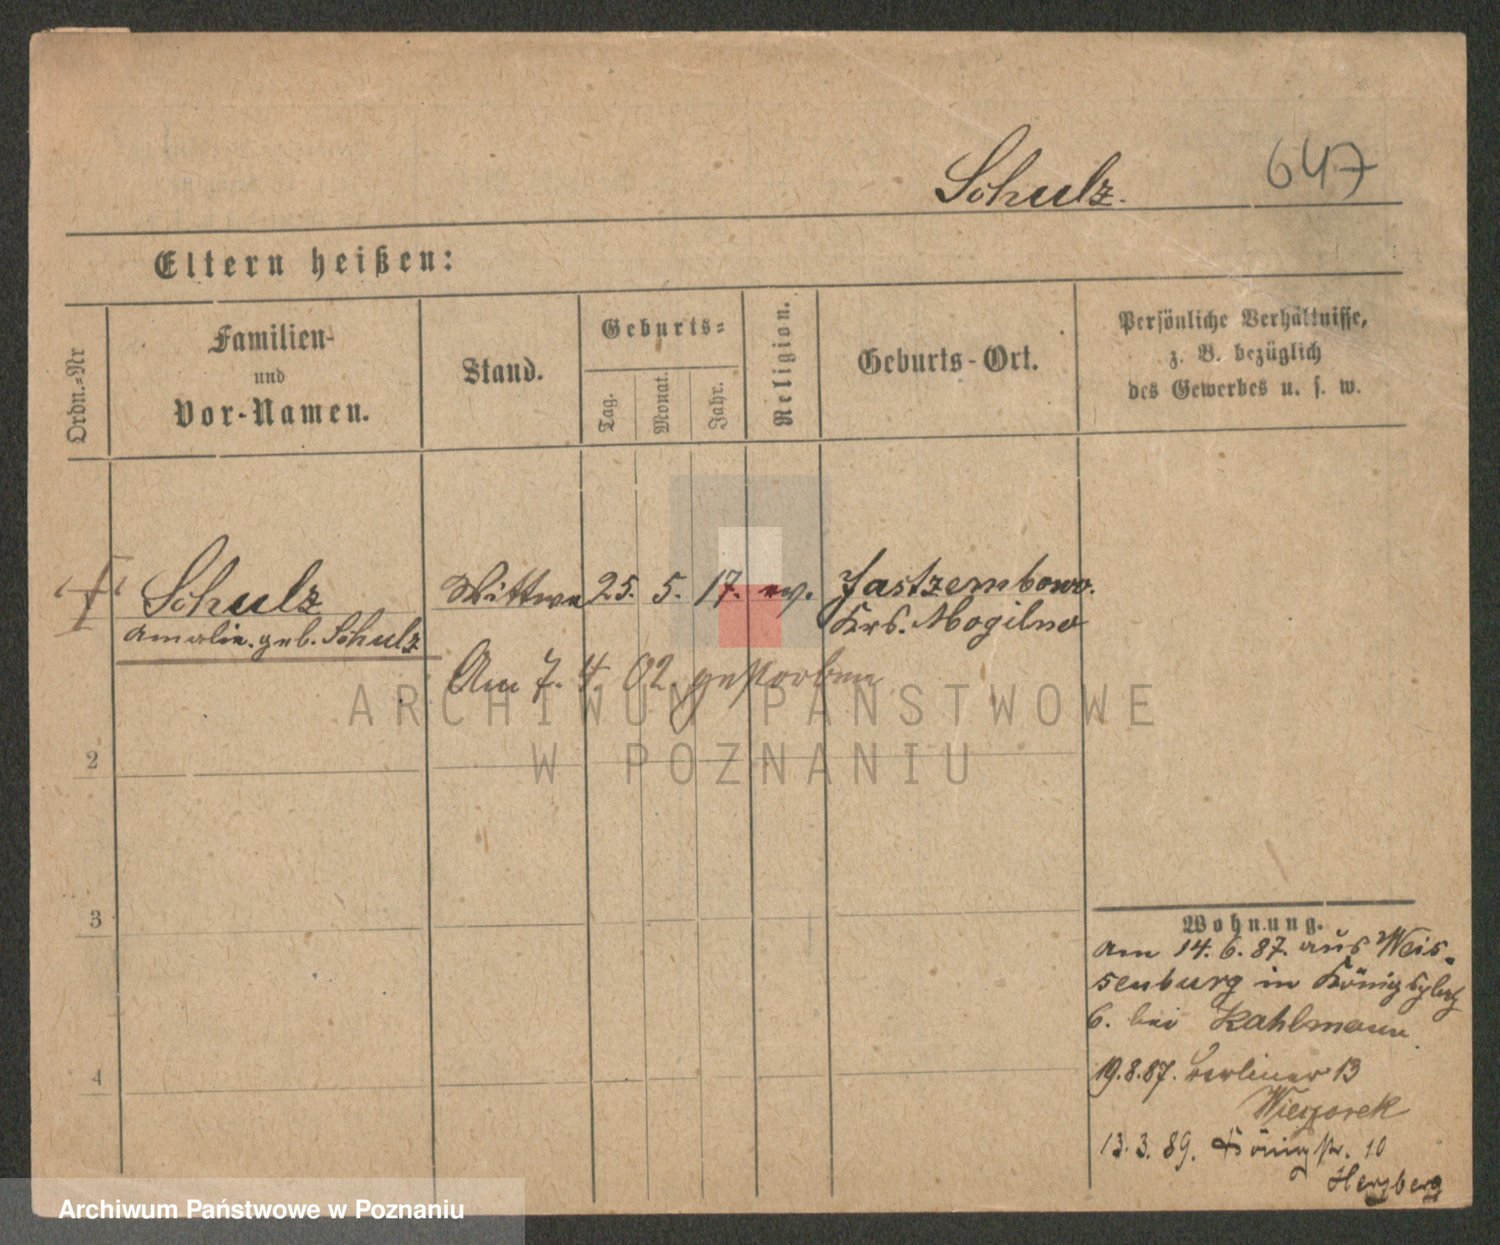 Schulz.
647
Eltern heißen:
Ordn.=Nr
Familien-
und
Vor-Namen.
Stand.
Geburts=
Tag.
Monat.
Jahr.
Religion.
Geburts-Ort.
Persönliche Verhältnisse,
z. B. bezüglich
des Gewerbes u. s. w.
Schulz
Wittwe
25. 5. 17. ev.
Jastzembowo.
Amalie. geb. Schulz
Krs. Mogilno
Am 7. 4. 02. gestorben
ARCHIWUM PAŃSTWOWE
W POZNANIU
2
3
4
Wohnung.
am 14. 6. 87. aus Weis-
senburg in Königsplatz
6. bei Kahlmann
19. 8. 87. Berliner 13
Wiezorek
13. 3. 89. Königstr. 10
Herzberg
Archiwum Państwowe w Poznaniu